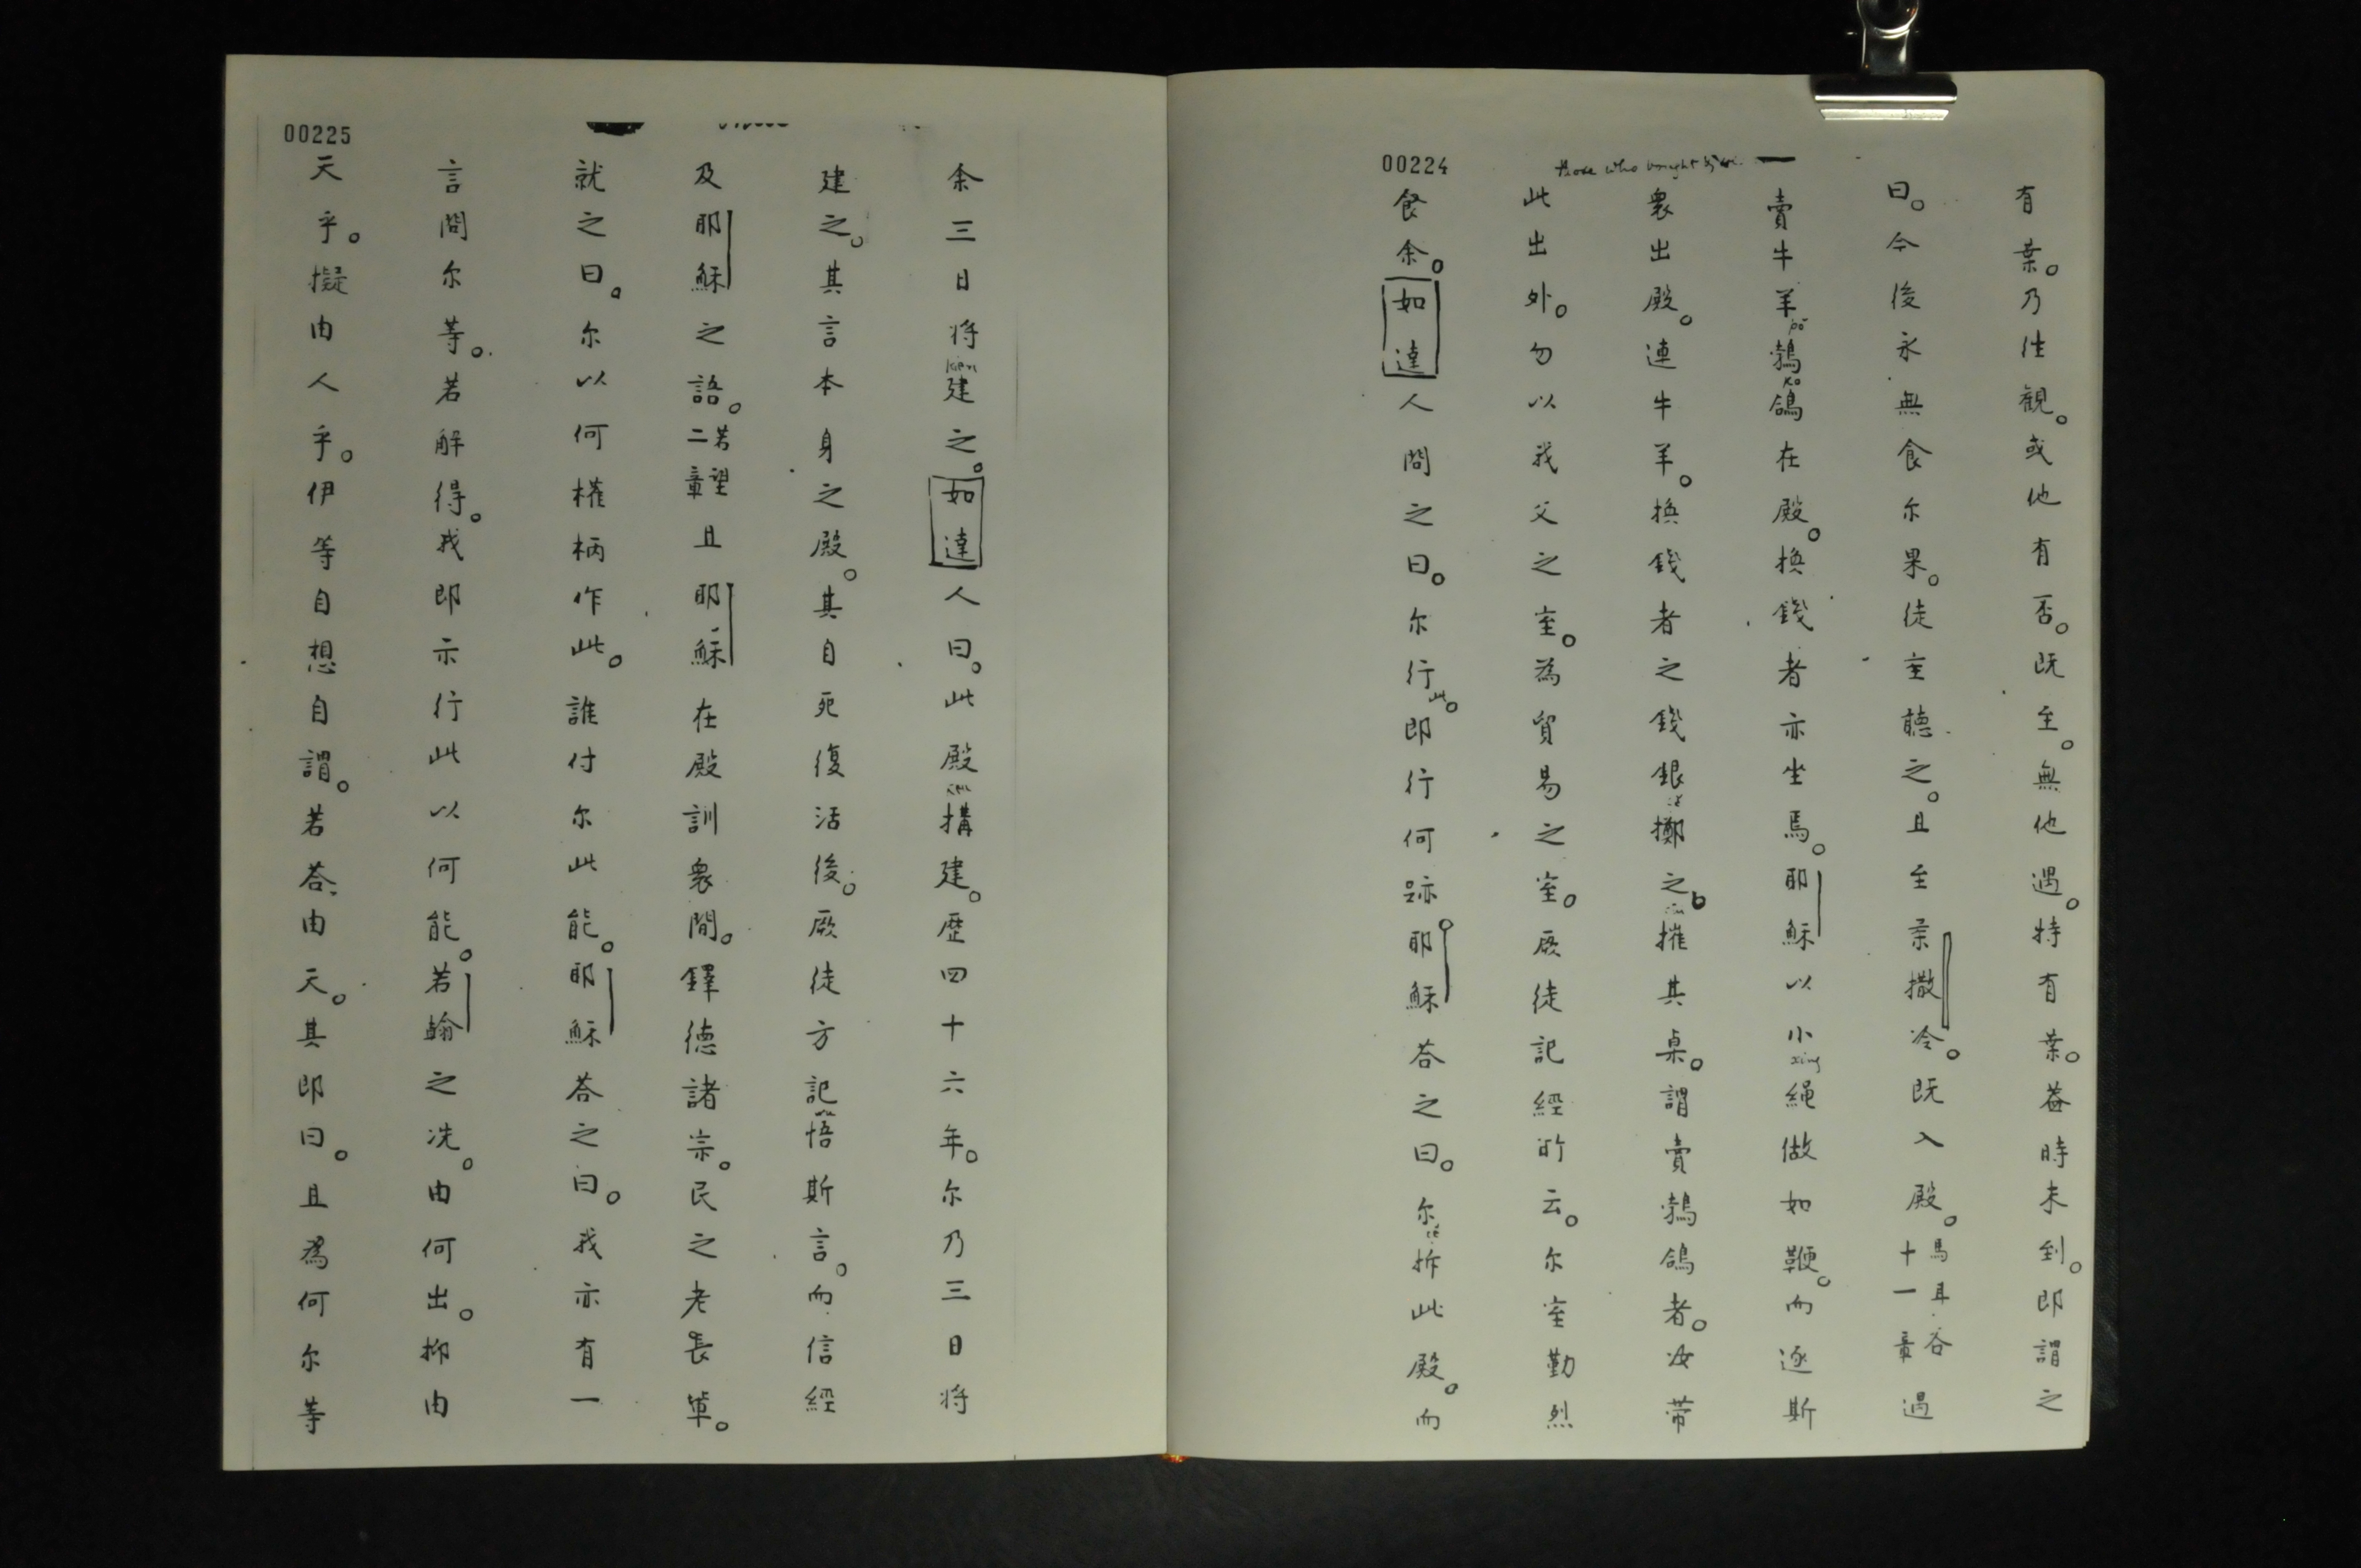 00224
有葉。乃往観。或他有否。既至。無他遇。特有葉。葢時未到。即謂之
曰。今後永無食尔果。徒至聽之。且至柔撒冷。既入殿。馬耳谷十一章遇
賣牛羊鵓鴿在殿。換錢者亦坐焉。耶穌以小繩做如鞭。而逐斯
衆出殿。連牛羊。換錢者之錢銀擲之。摧其桌。謂賣鵓鴿者。汝带
此出外。勿以我父之室。為貿易之室。厥徒記經所云。尔室勤烈
食余。如達人問之曰。尔行此。即行何跡。耶穌荅之曰。尔拆此殿。而
those who bought
00225
余三日将建之。如達人曰。此殿搆建。歴四十六年。尔乃三日将
建之。其言本身之殿。其自死復活後。厥徒方記悟斯言。而信經
及耶穌之語。若望二章且耶穌在殿訓衆間。鐸德諸宗。民之老長軰。
就之曰。尔以何權柄作此。誰付尔此能。耶穌荅之曰。我亦有一
言問尔等。若解得。我即示行此以何能。若翰之洗。由何出。抑由
天乎。擬由人乎。伊等自想自謂。若荅由天。其即曰。且為何尔等